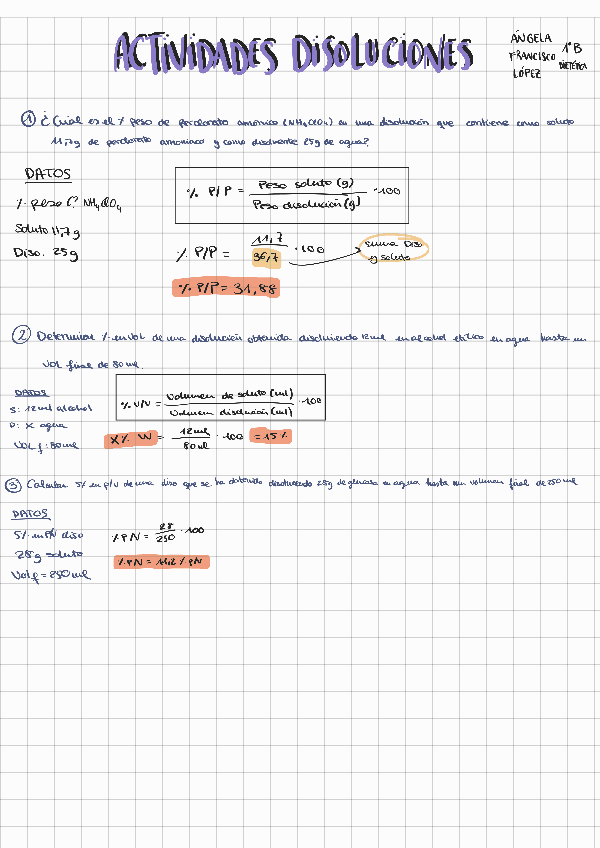 ACTIVIDADES DISOLUCIONES
ÁNGELA
FRANCISCO
LÓPEZ
1ºB
DIETÉTICA
① ¿Cuál es el % peso de perclorato amónico (NH4ClO4) en una disolución que contiene como soluto
11,7g de perclorato amoníaco y como disolvente 25g de agua?
DATOS
% peso (? NH4ClO4
Soluto 11,7g
Diso. 25g
% P/P = Peso soluto (g) / Peso disolución (g) · 100
% P/P = 11,7 / 36,7 · 100
suma Diso
y soluto
% P/P = 31,88
② Determinar % en vol de una disolución obtenida disolviendo 12ml en alcohol etílico en agua hasta un
vol final de 80ml.
DATOS
S: 12ml alcohol
D: X agua
Vol f: 80ml
% V/V = Volumen de soluto (ml) / Volumen disolución (ml) · 100
X % VV = 12ml / 80ml · 100 = 15%
③ Calcular 5% en p/v de una diso que se ha obtenido disolviendo 28g de glucosa en agua hasta un volumen final de 250ml
DATOS
5% en P/V diso
28g soluto
Vol f = 250ml
% P/V = 28 / 250 · 100
% P/V = 11,2 % P/V